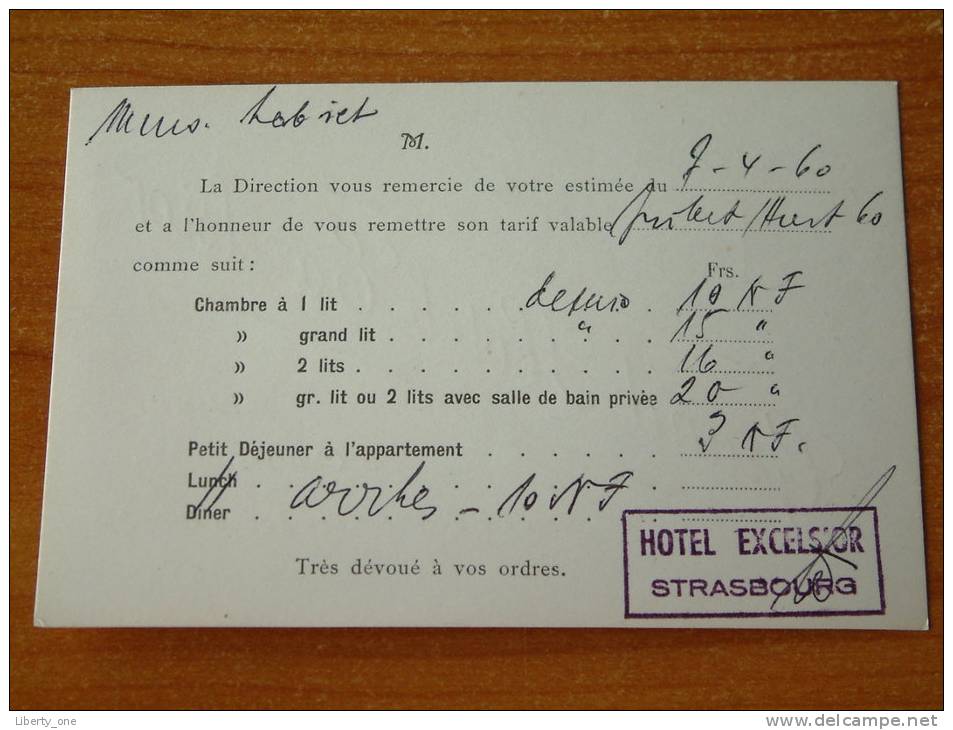 M.
La Direction vous remercie de votre estimée du 7-4-60
et a l'honneur de vous remettre son tarif valable 60
comme suit :
Frs.
Chambre à 1 lit . . . . . 10 NF
» grand lit . . . . . . . . . . 15 "
» 2 lits . . . . . . . . . . . 16 "
» gr. lit ou 2 lits avec salle de bain privèe 20 "
Petit Déjeuner à l'appartement . . . . . . 3 NF.
Lunch . . . . . . . . . . . . . .
Dîner . . arrhes - 10 NF
HOTEL EXCELSIOR
STRASBOURG
Très dévoué à vos ordres.
Liberty_one
www.delcampe.net